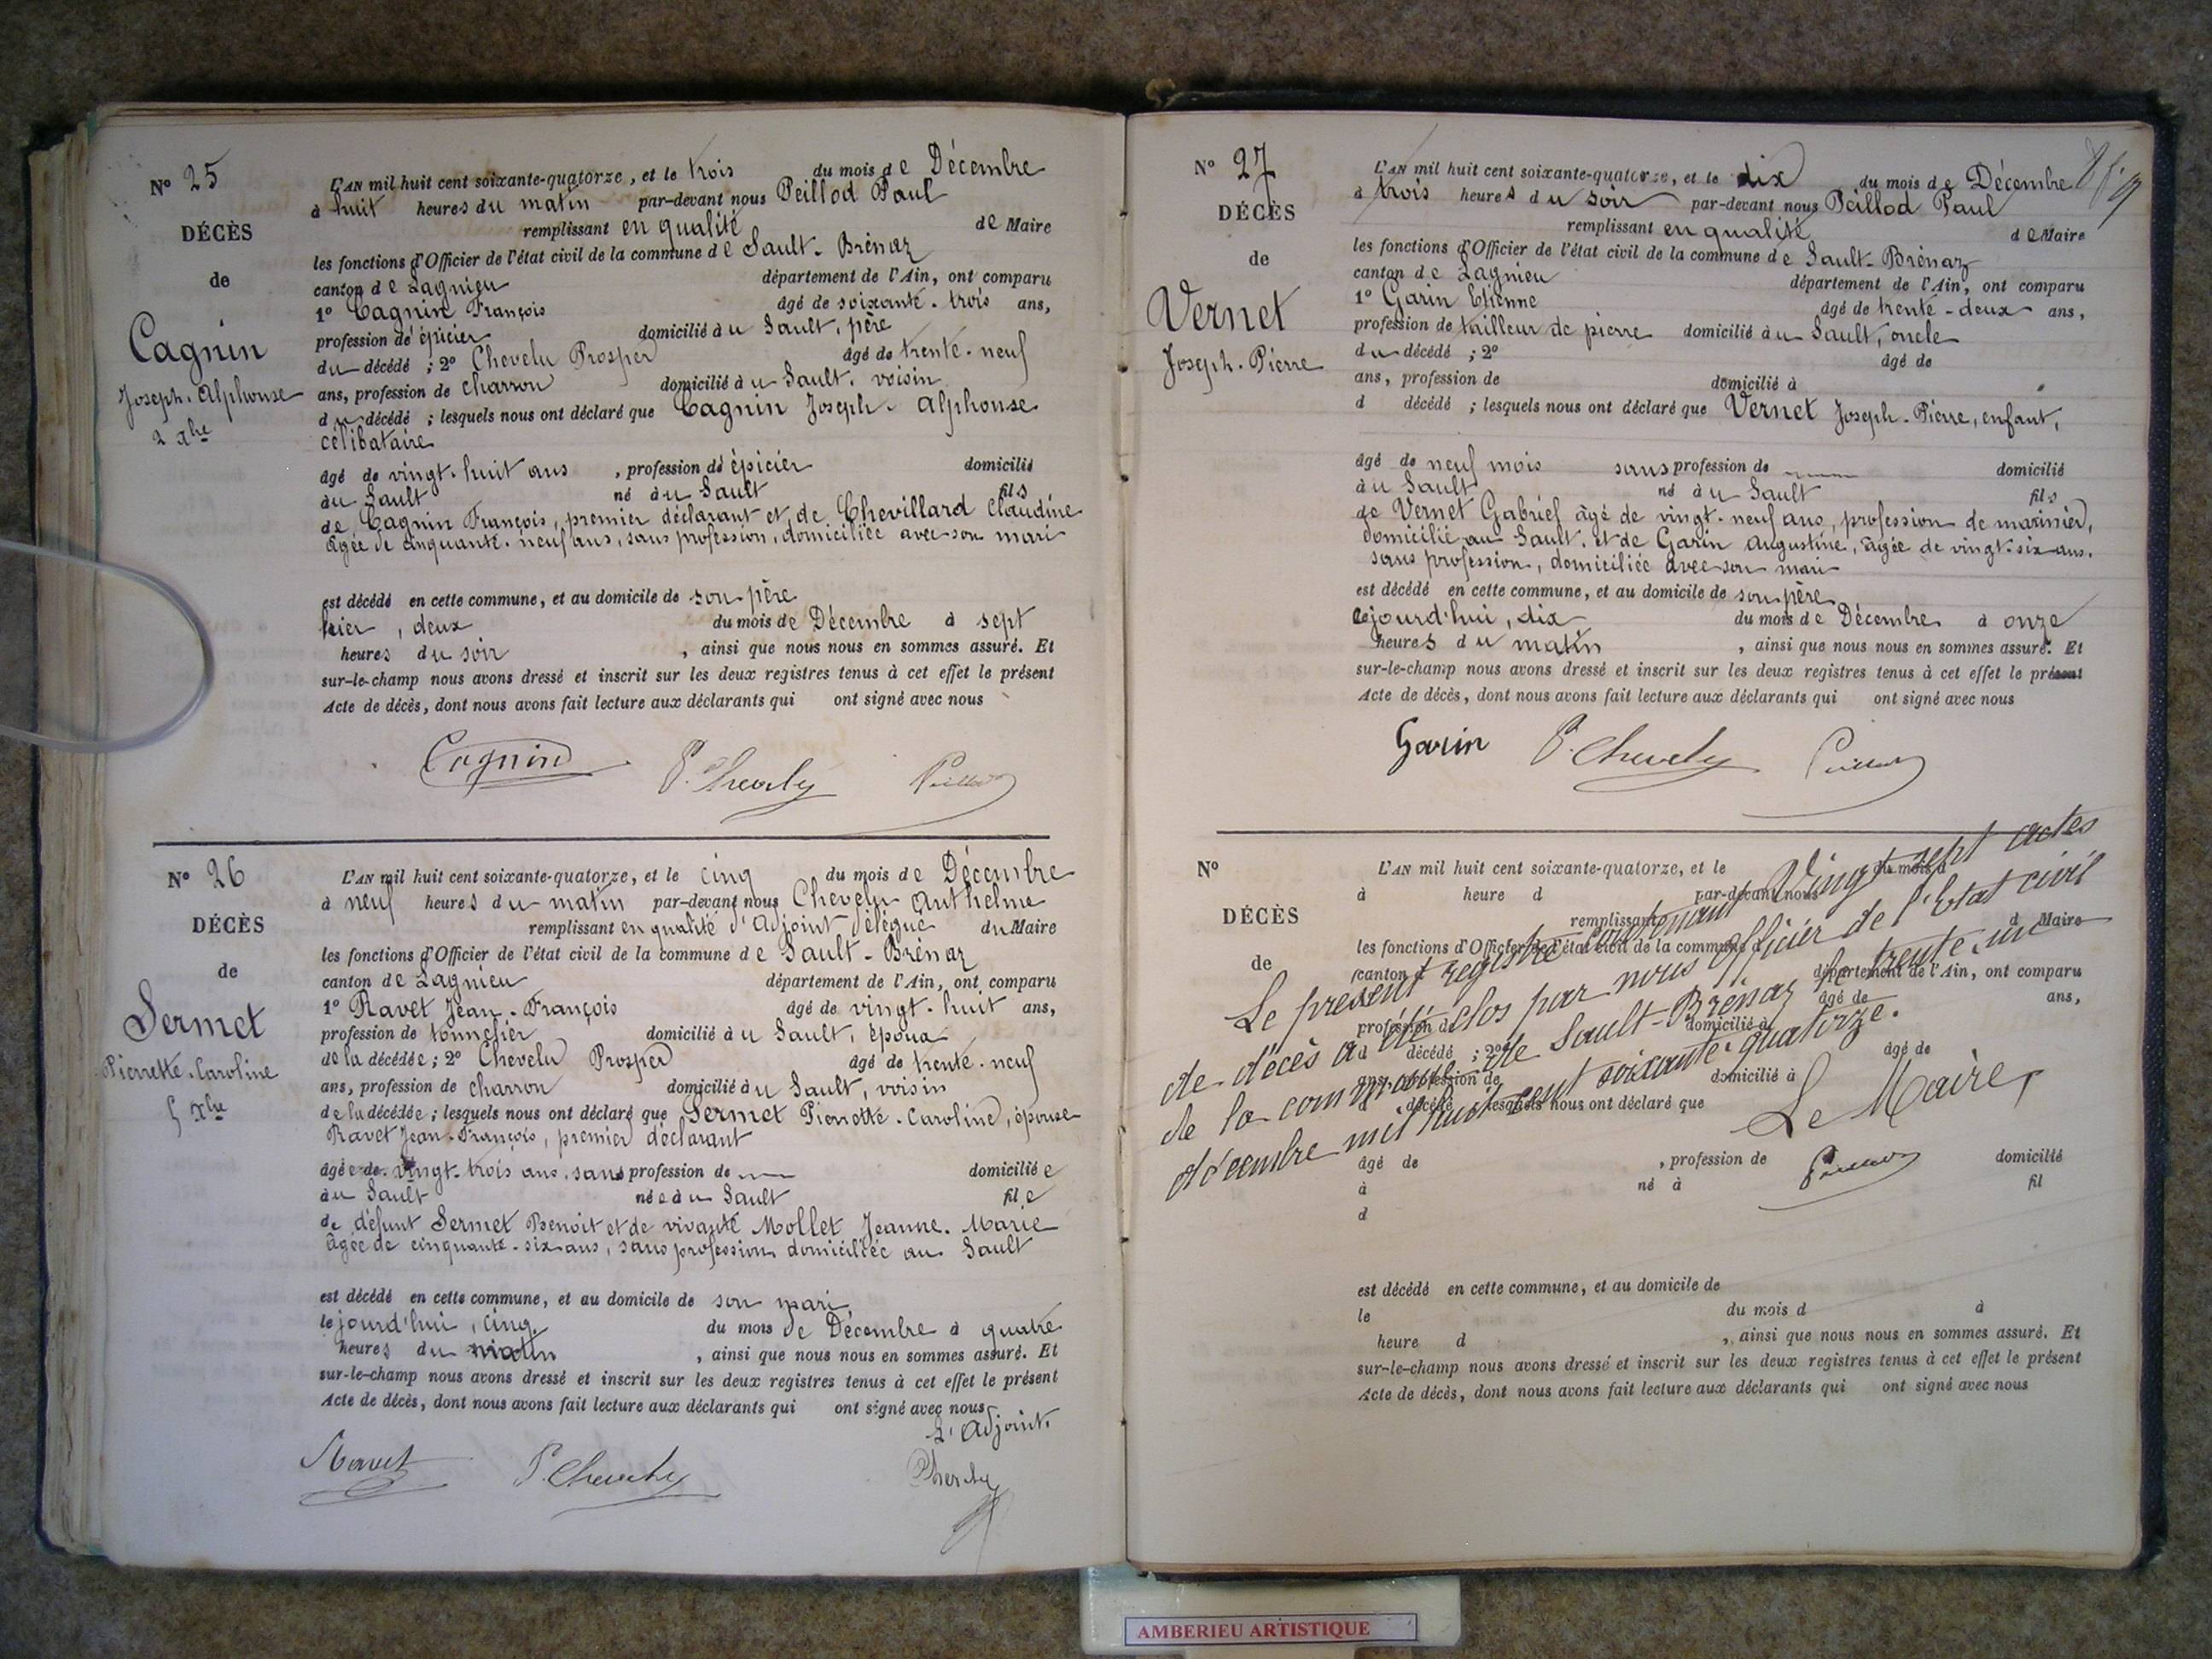 N° 25
DÉCÈS
de
Cagnin
Joseph. Alphonse
2 Xbre
L'AN mil huit cent soixante-quatorze, et le trois du mois de Décembre
à huit heures du matin par-devant nous Peillod Paul
remplissant en qualité de Maire
les fonctions d'Officier de l'état civil de la commune de Sault-Brénaz
canton de Lagnieu département de l'Ain, ont comparu
1° Cagnin François âgé de soixante-trois ans,
profession d'épicier domicilié au Sault, père
du décédé ; 2° Chevelu Prosper âgé de trente-neuf
ans, profession de charron domicilié au Sault, voisin
du décédé ; lesquels nous ont déclaré que Cagnin Joseph-Alphonse
célibataire
âgé de vingt-huit ans, profession d'épicier domicilié
au Sault né au Sault fils
de Cagnin François, premier déclarant et de Chevillard Claudine
âgée de cinquante-neuf ans, sans profession, domiciliée avec son mari
est décédé en cette commune, et au domicile de son père
hier, deux du mois de Décembre à sept
heures du soir, ainsi que nous nous en sommes assuré. Et
sur-le-champ nous avons dressé et inscrit sur les deux registres tenus à cet effet le présent
Acte de décès, dont nous avons fait lecture aux déclarants qui ont signé avec nous
Cagnin P. Chevelu Peillod
N° 26
DÉCÈS
de
Sermet
Pierrette-Caroline
5 Xbre
L'AN mil huit cent soixante-quatorze, et le cinq du mois de Décembre
à neuf heures du matin par-devant nous Chevelu Anthelme
remplissant en qualité d'Adjoint délégué du Maire
les fonctions d'Officier de l'état civil de la commune de Sault-Brénaz
canton de Lagnieu département de l'Ain, ont comparu
1° Ravet Jean-François âgé de vingt-huit ans,
profession de tonnelier domicilié au Sault, époux
de la décédée ; 2° Chevelu Prosper âgé de trente-neuf
ans, profession de charron domicilié au Sault, voisin
de la décédée ; lesquels nous ont déclaré que Sermet Pierrette-Caroline, épouse
Ravet Jean-François, premier déclarant
âgée de vingt-trois ans, sans profession de domiciliée
au Sault née au Sault fille
de défunt Sermet Benoit et de vivante Mollet Jeanne-Marie
âgée de cinquante-six ans, sans profession domiciliée au Sault
est décédé en cette commune, et au domicile de son mari
le jourd'hui, cinq, du mois de Décembre à quatre
heures du matin, ainsi que nous nous en sommes assuré. Et
sur-le-champ nous avons dressé et inscrit sur les deux registres tenus à cet effet le présent
Acte de décès, dont nous avons fait lecture aux déclarants qui ont signé avec nous
L'Adjoint.
Ravet P. Chevelu Chevelu
N° 27
DÉCÈS
de
Vernet
Joseph-Pierre
L'AN mil huit cent soixante-quatorze, et le dix du mois de Décembre
à trois heures du soir par-devant nous Peillod Paul
remplissant en qualité de Maire
les fonctions d'Officier de l'état civil de la commune de Sault-Brénaz
canton de Lagnieu département de l'Ain, ont comparu
1° Garin Etienne âgé de trente-deux ans,
profession de tailleur de pierre domicilié au Sault, oncle
du décédé ; 2° âgé de
ans, profession de domicilié à
d décédé ; lesquels nous ont déclaré que Vernet Joseph-Pierre, enfant,
âgé de neuf mois sans profession de domicilié
au Sault né au Sault fils
de Vernet Gabriel âgé de vingt-neuf ans, profession de marinier,
domicilié au Sault, et de Garin Augustine, âgée de vingt-six ans,
sans profession, domiciliée avec son mari
est décédé en cette commune, et au domicile de son père
cejourd'hui, dix du mois de Décembre à onze
heures du matin, ainsi que nous nous en sommes assuré. Et
sur-le-champ nous avons dressé et inscrit sur les deux registres tenus à cet effet le présent
Acte de décès, dont nous avons fait lecture aux déclarants qui ont signé avec nous
Garin P. Chevelu Peillod
N°
DÉCÈS
de
L'AN mil huit cent soixante-quatorze, et le du mois d
à heure d par-devant nous
remplissant d Maire
les fonctions d'Officier de l'état civil de la commune d
canton d département de l'Ain, ont comparu
âgé de ans,
profession d domicilié à
d décédé ; 2° âgé de
ans, profession de domicilié à
d décédé ; lesquels nous ont déclaré que
Le présent registre contenant Vingt-sept actes
de décès a été clos par nous officier de l'Etat civil
de la commune de Sault-Brénaz le trente-un
décembre mil huit cent soixante-quatorze.
Le Maire,
Peillod
âgé de , profession de domicilié
à né à fil
d
est décédé en cette commune, et au domicile de
le du mois d à
heure d , ainsi que nous nous en sommes assuré. Et
sur-le-champ nous avons dressé et inscrit sur les deux registres tenus à cet effet le présent
Acte de décès, dont nous avons fait lecture aux déclarants qui ont signé avec nous
AMBERIEU ARTISTIQUE